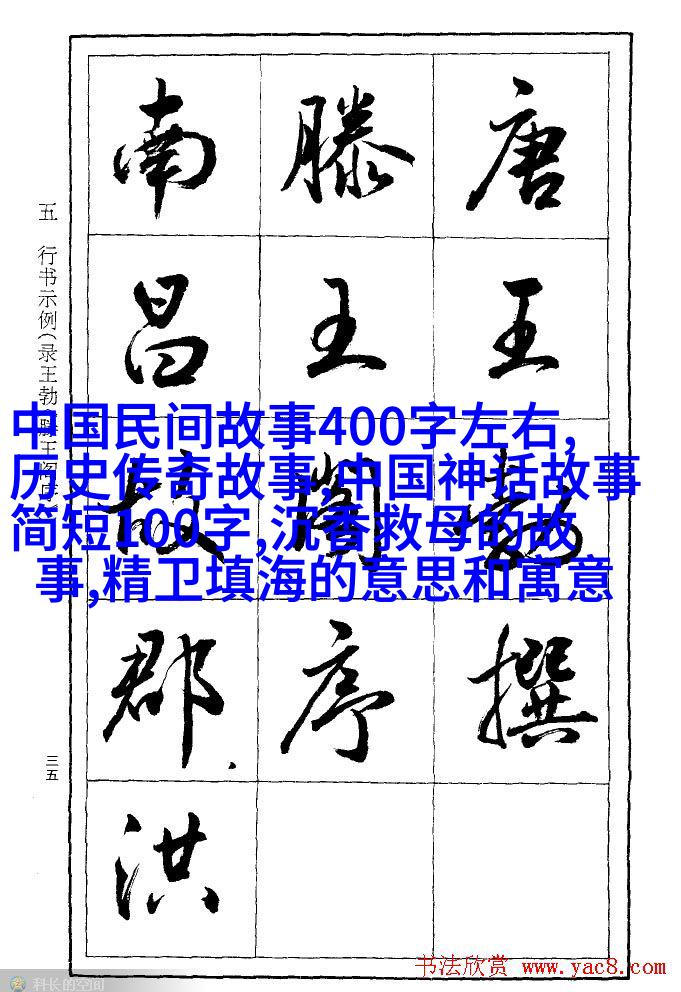 唐王勃撰
滕王阁序
南昌故郡
洪
五 行书示例(录王勃滕王阁序)
三五
中国民间故事400字左右,
历史传奇故事,中国神话故事
简短100字,沉香救母的故
事,精卫填海的意思和寓意
书法欣赏 www.yac8.com
科长的空间